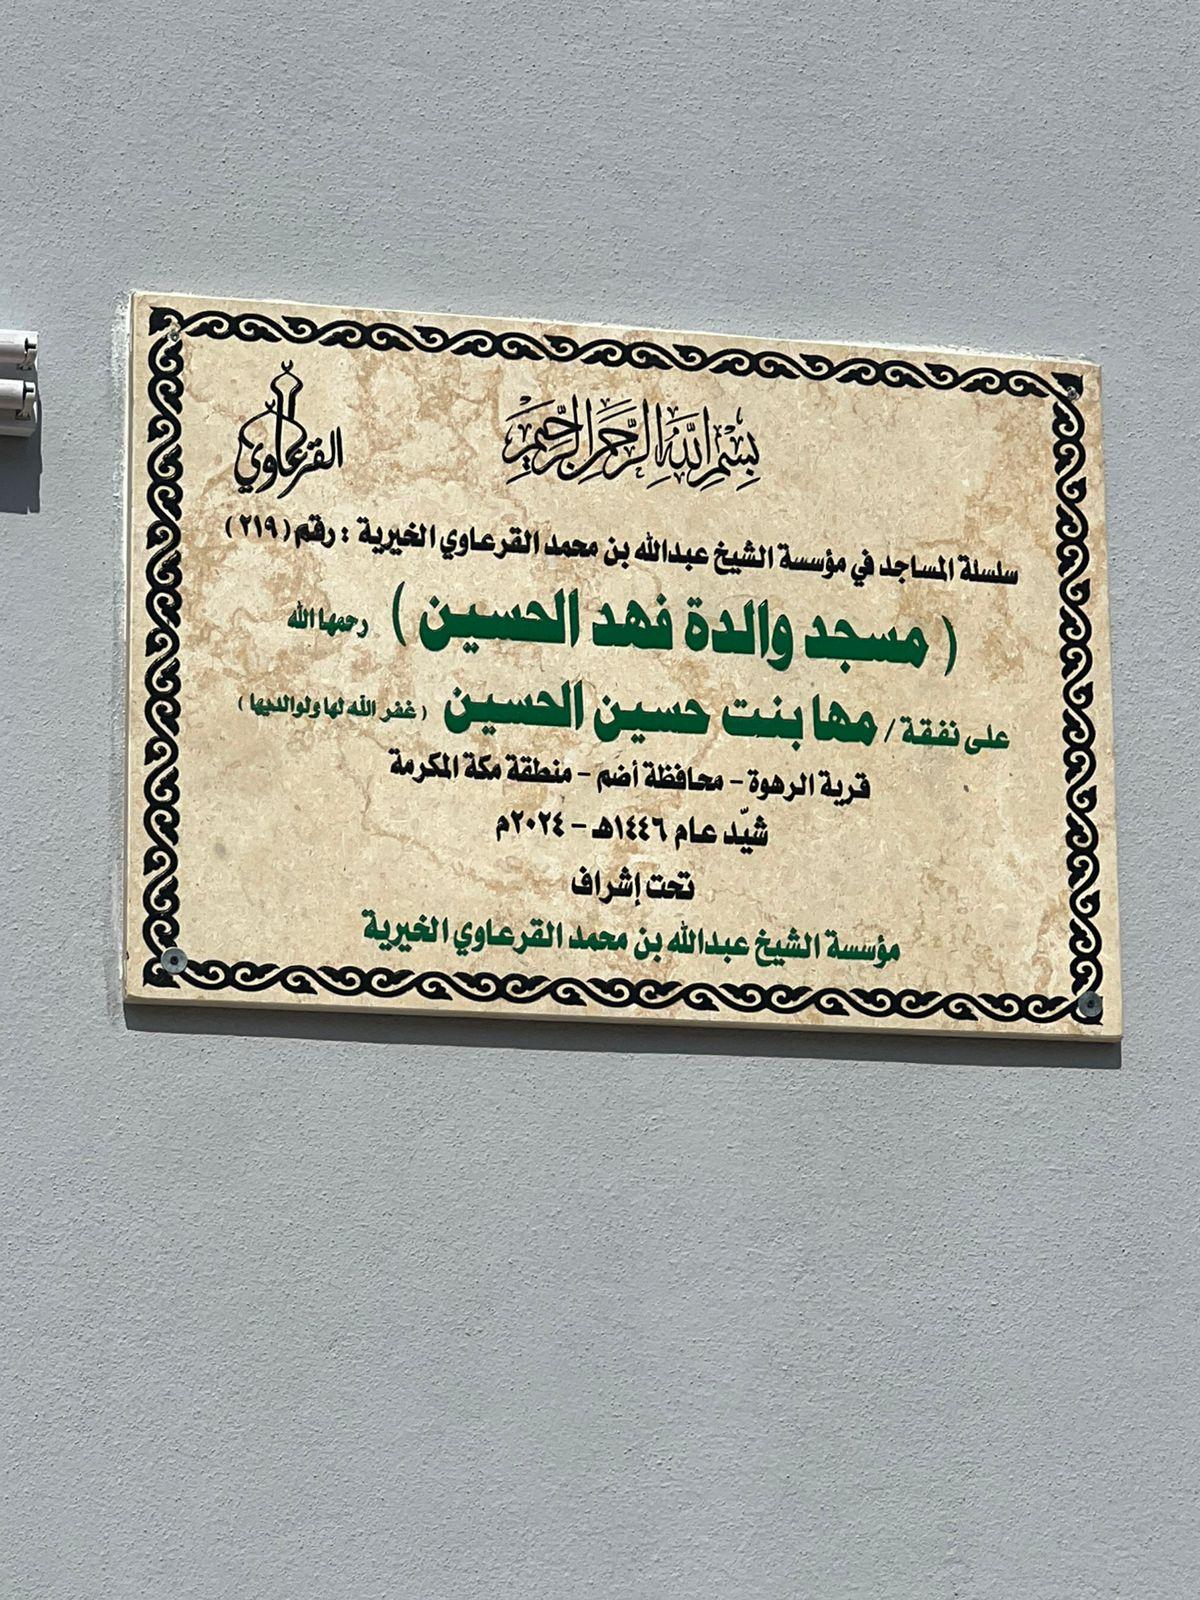 القرعاوي
بِسْمِ اللَّهِ الرَّحْمَنِ الرَّحِيمِ
سلسلة المساجد في مؤسسة الشيخ عبدالله بن محمد القرعاوي الخيرية : رقم (٢١٩)
( مسجد والدة فهد الحسين ) رحمها الله
على نفقة / مها بنت حسين الحسين ( غفر الله لها ولوالديها )
قرية الرهوة - محافظة أضم - منطقة مكة المكرمة
شيّد عام ١٤٤٦هـ - ٢٠٢٤م
تحت إشراف
مؤسسة الشيخ عبدالله بن محمد القرعاوي الخيرية